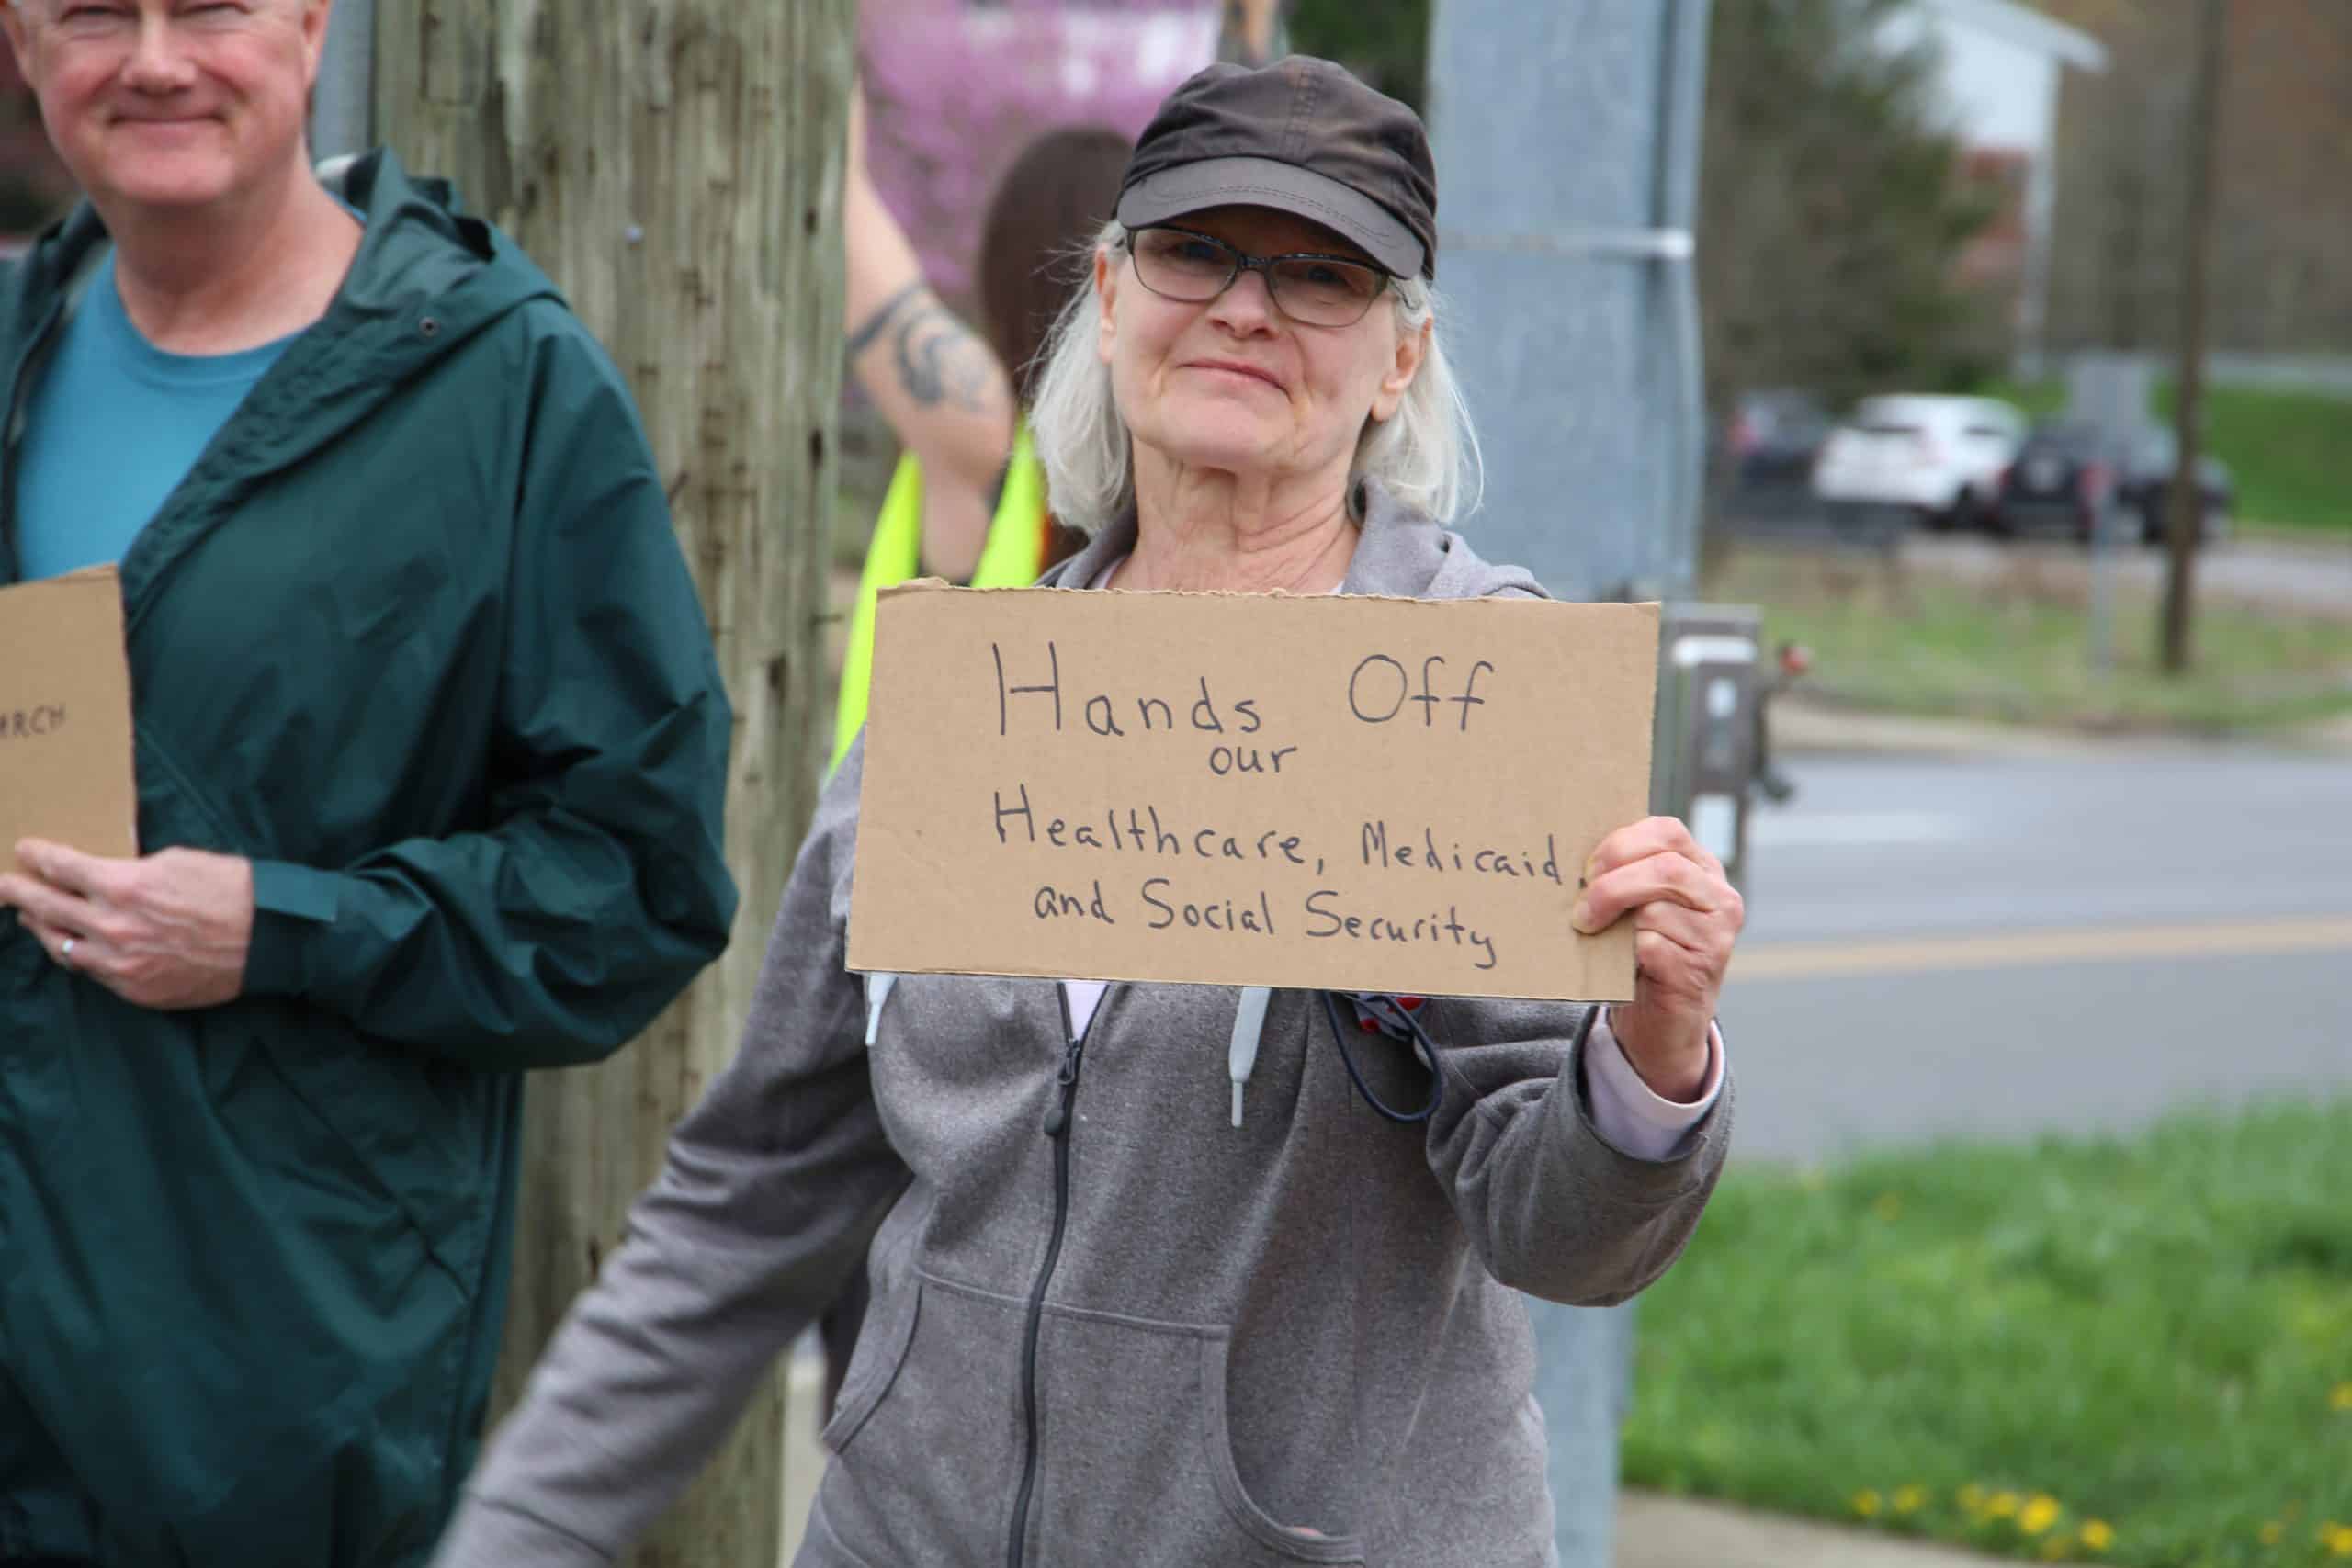 Hands Off
our
Healthcare, Medicaid,
and Social Security